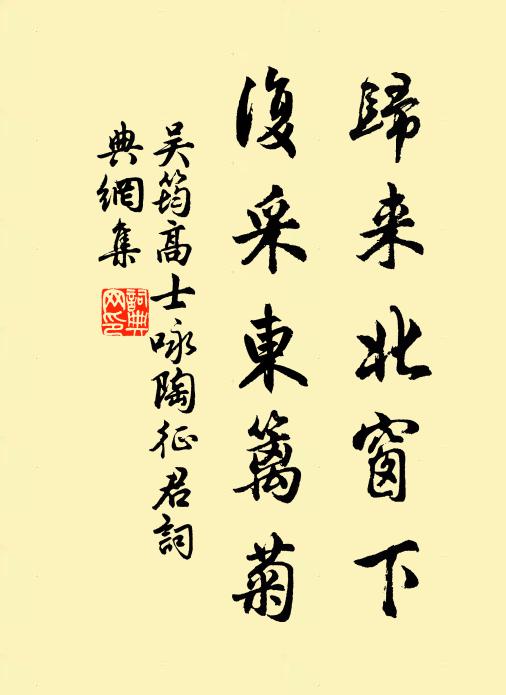 歸来北窗下
復采東籬菊
吴筠高士咏陶征君詞
典網集
詞典
网印